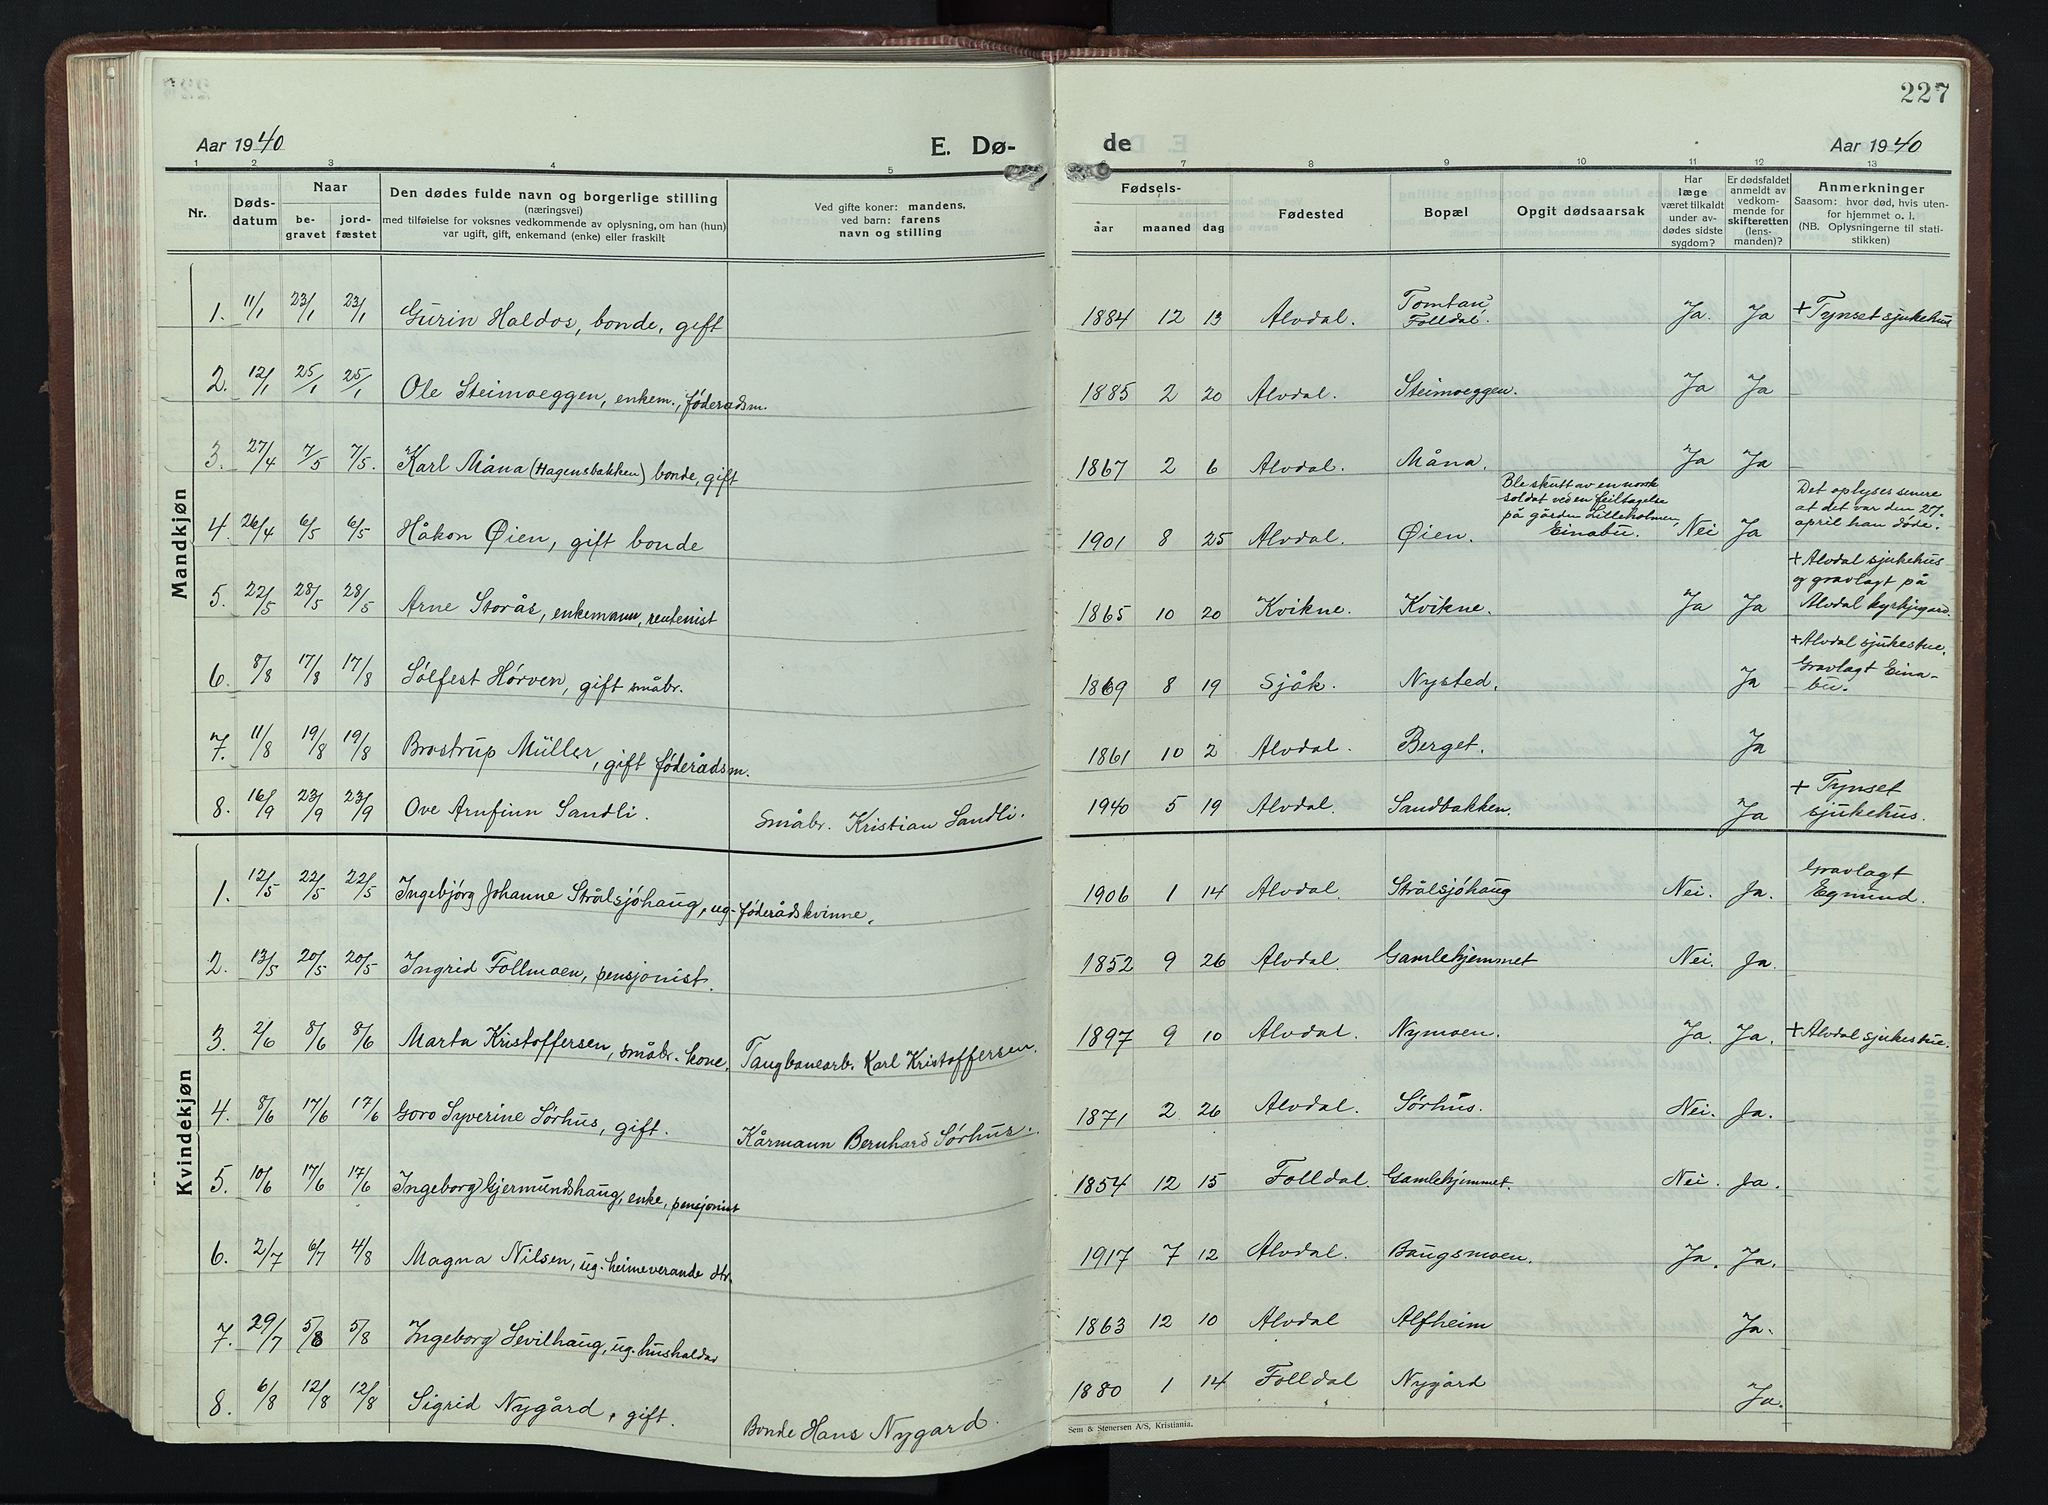 227
Aar 1940
E. Dø-
de
Aar 1940
1 2 3 4 5 6 7 8 9 10 11 12 13
Nr.
Døds-
datum
Naar
be-
gravet
jord-
fæstet
Den dødes fulde navn og borgerlige stilling
(næringsvei)
med tilføielse for voksnes vedkommende av oplysning, om han (hun)
var ugift, gift, enkemand (enke) eller fraskilt
Ved gifte koner: mandens,
ved barn: farens
navn og stilling
Fødsels-
aar
maaned
dag
Fødested
Bopæl
Opgit dødsaarsak
Har
læge
været tilkaldt
under av-
dødes sidste
sygdom?
Er dødsfaldet
anmeldt av
vedkom-
mende for
skifteretten
(lens-
manden)?
Anmerkninger
Saasom: hvor død, hvis uten-
for hjemmet o. l.
(NB. Oplysningerne til stati-
stikken)
Mandkjøn
1. 11/1 23/1 23/1 Gurin Haldos, bonde, gift 1884 12 13 Alvdal. Tomtan, Folldal. Ja. Ja + Tynset sjukehus
2. 12/1 25/1 25/1 Ole Steimoeggen, enkem., føderadsm. 1885 2 20 Alvdal. Steimoeggen. Ja Ja
3. 27/4 7/5 7/5. Karl Måna (Hagensbakken) bonde, gift 1867 2 6 Alvdal. Måna. Ja Ja
4. 26/4 6/5 6/5 Håkon Øien, gift bonde 1901 8 25 Alvdal. Øien.
Ble skutt av en norsk
soldat ved en feiltagelse
på gården Lilleholmen,
Einabu.
Nei Ja
Det oplyses senere
at det var den 27.
april han døde.
5. 22/5 28/5 28/5 Arne Storås, enkemann, rentenist 1865 10 20 Kvikne. Kvikne. Ja Ja
+ Alvdal sjukehus
og gravlagt på
Alvdal kyrkjegard.
6. 8/8 17/8 17/8 Sólfest Hørven, gift småbr. 1869 8 19 Sjåk. Nysted. Ja
+ Alvdal sjukestue.
Gravlagt Eina-
bu.
7. 11/8 19/8 19/8 Brostrup Müller, gift føderådsm. 1861 10 2 Alvdal. Berget. Ja
8. 16/9 23/9 23/9 Ove Arnfinn Sandli. Småbr. Kristian Sandli. 1940 5 19 Alvdal. Sandbakken. Ja
+ Tynset
sjukehus.
Kvindekjøn
1. 12/5 22/5 22/5 Ingebjørg Johanne Strålsjóhaug, ug. føderådskvinne. 1906 1 14 Alvdal. Strålsjóhaug Nei. Ja.
Gravlagt
Egmund.
2. 13/5 20/5 20/5 Ingrid Follmoen, pensjonist. 1852 9 26 Alvdal. Gamlehjemmet Nei. Ja.
3. 2/6 8/6 8/6 Marta Kristoffersen, småbr. kone, Taugbanearb. Karl Kristoffersen. 1897 9 10 Alvdal. Nymoen. Ja. Ja. + Alvdal sjukestue.
4. 8/6 17/6 17/6 Goro Syverine Sørhus, gift. Kårmann Bernhard Sørhus. 1871 2 26 Alvdal. Sørhus. Nei. Ja.
5. 10/6 17/6 17/6 Ingeborg Gjermundshaug, enke, pensjonist 1854 12 15 Folldal. Gamlehjemmet. Nei. Ja.
6. 2/7 6/7 4/8 Magna Nilsen, ug. heimeverande dtr. 1917 7 12 Alvdal. Baugsmoen. Ja. Ja.
7. 29/7 5/8 5/8 Ingeborg Sevilhaug, ug. husholdar 1863 12 10 Alvdal Alfheim Ja.
8. 6/8 12/8 12/8 Sigrid Nygård, gift. Bonde Hans Nygard. 1880 1 14 Folldal Nygård Ja.
Sem & Stenersen A/S, Kristiania.